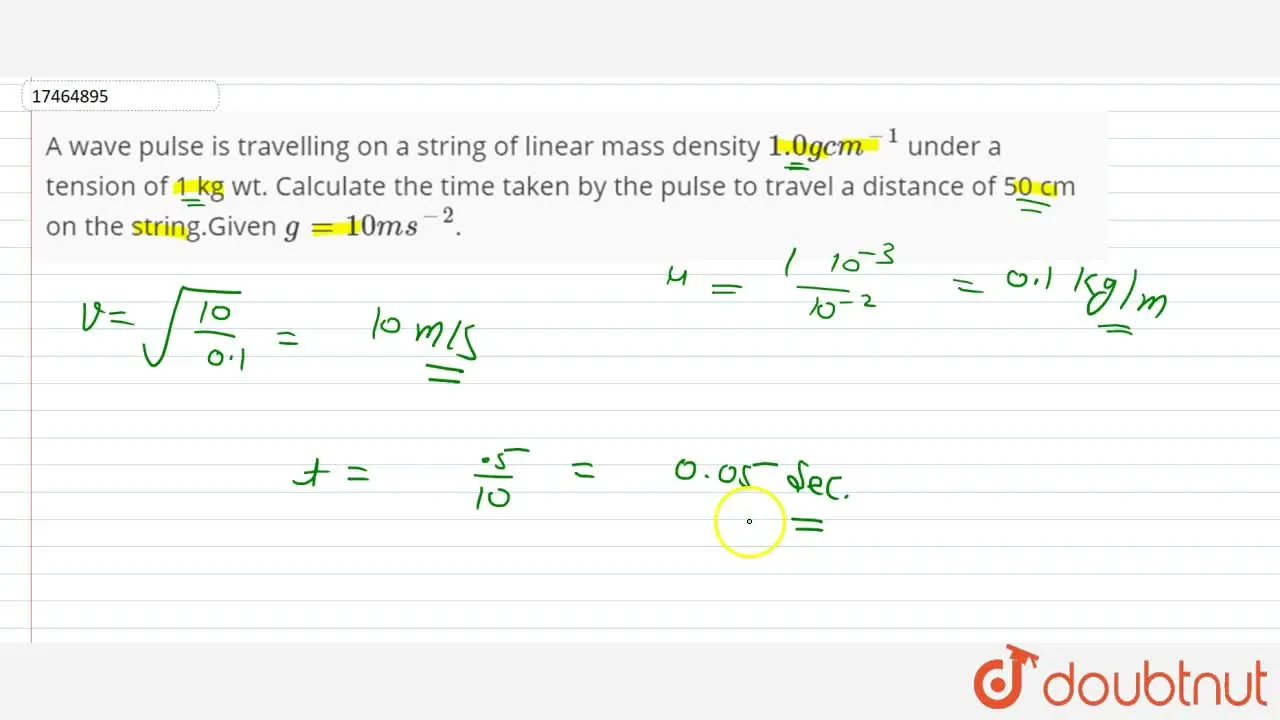 17464895
A wave pulse is travelling on a string of linear mass density 1.0gcm⁻¹ under a
tension of 1 kg wt. Calculate the time taken by the pulse to travel a distance of 50 cm
on the string.Given g = 10ms⁻².
μ = 1 10⁻³ / 10⁻² = 0.1 kg/m
v = √(10/0.1) = 10 m/s
t = .5/10 = 0.05 Sec.
doubtnut